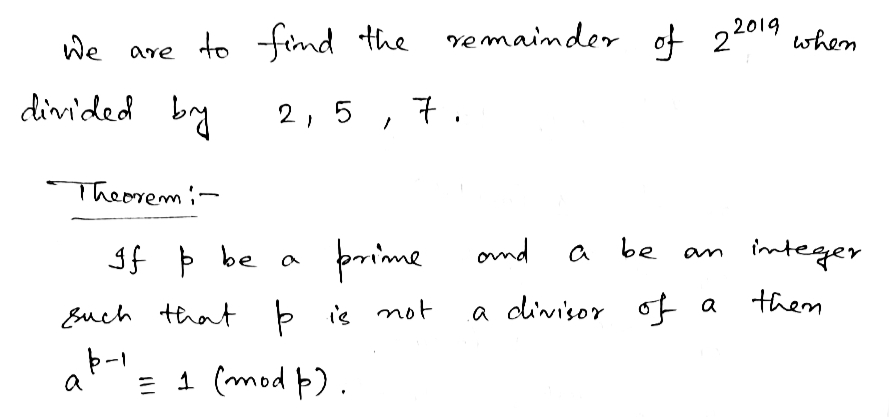 We are to find the remainder of 2^2019 when
divided by 2, 5, 7.
Theorem :-
If p be a prime and a be an integer
such that p is not a divisor of a then
a^(p-1) ≡ 1 (mod p).